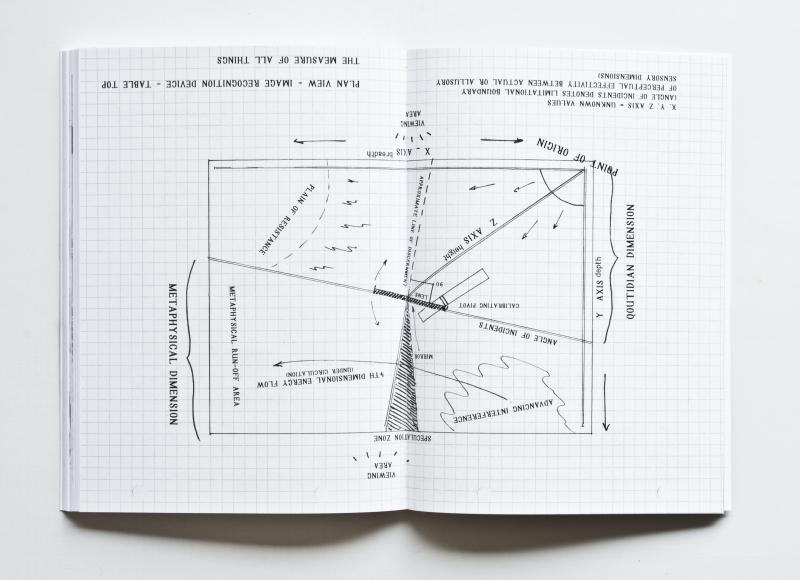 VIEWING
AREA
SPECULATION ZONE
ADVANCING INTERFERENCE
4TH DIMENSIONAL ENERGY FLOW
(UNDER CIRCULATION)
MIRROR
METAPHYSICAL RUN-OFF AREA
METAPHYSICAL DIMENSION
ANGLE OF INCIDENTS
CALIBRATING PIVOT
LENS
90
Y AXIS depth
QOUTIDIAN DIMENSION
Z AXIS height
APPROXIMATE LINE OF DISCERNMENT
PLAIN OF RESISTANCE
POINT OF ORIGIN
X - AXIS breadth
VIEWING
AREA
X, Y, Z AXIS = UNKNOWN VALUES
(ANGLE OF INCIDENTS DENOTES LIMITATIONAL BOUNDARY
OF PERCEPTUAL EFFECTIVITY BETWEEN ACTUAL OR ALLUSORY
SENSORY DIMENSIONS)
PLAN VIEW - IMAGE RECOGNITION DEVICE - TABLE TOP
THE MEASURE OF ALL THINGS